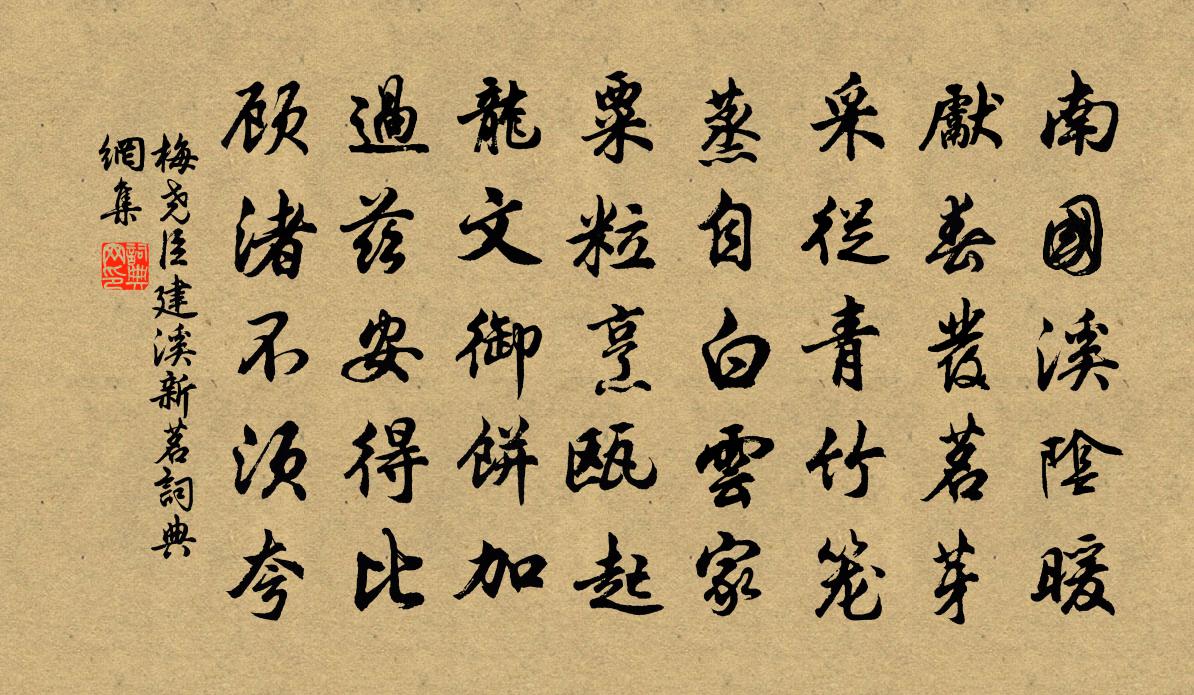 南國溪陰暖
獻春發茗芽
采從青竹笼
蒸自白雲家
粟粒烹甌起
龍文御餅加
過茲安得比
顾渚不须夸
梅尧臣建溪新茗詞典
網集
詞典
网印